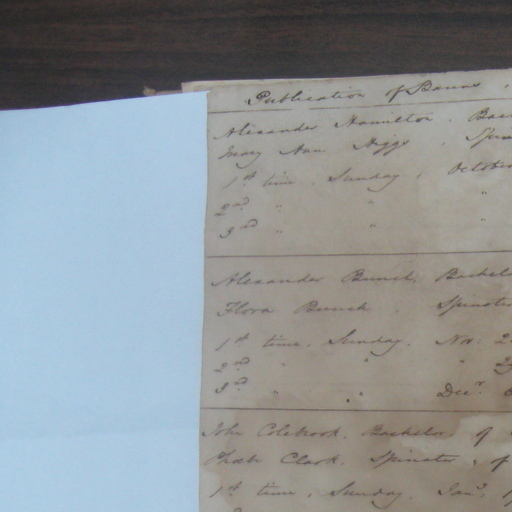 Publication of Banns
Alexander Hamilton, Bac
Mary Ann Higgs, Spin
1st time, Sunday, October
2nd " " "
3rd " "
Alexander Bunch, Bachel
Flora Bunch, Spinster
1st time, Sunday, Nov. 2
2nd " " 2
3rd " " Decr.
John Colebrook, Bachelor, of
Phœbe Clark, Spinster, of
1st time, Sunday, Jany. 1